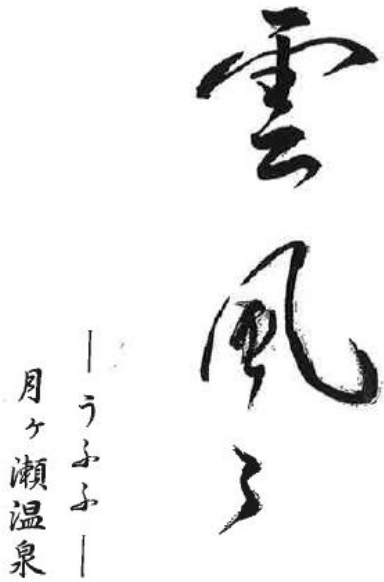 雲風々
―うふふ―
月ヶ瀬温泉